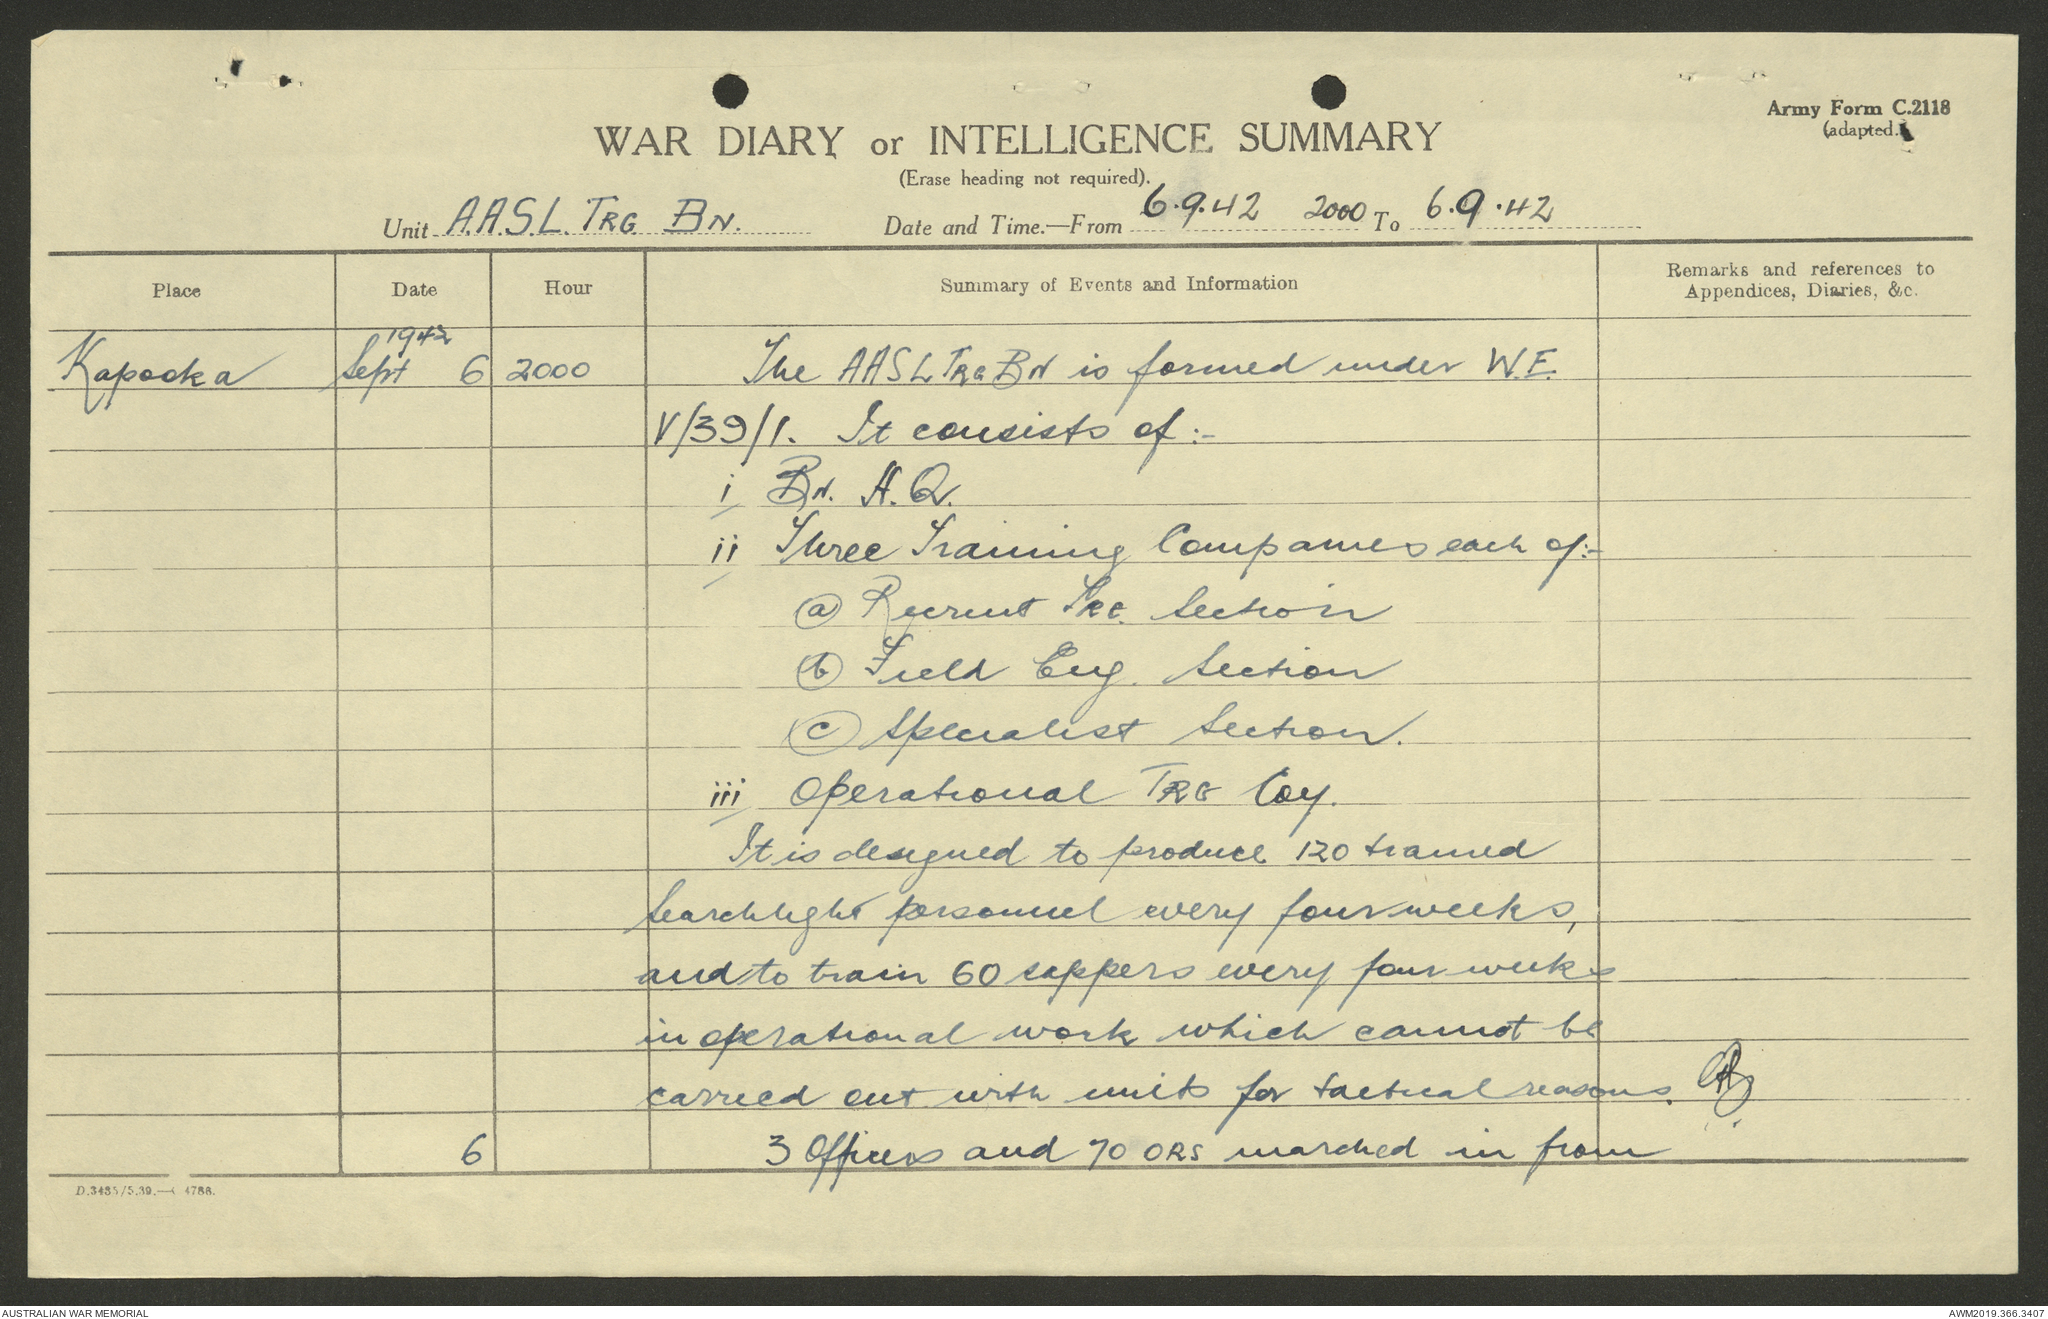 Army Form C.2118
(adapted.)
WAR DIARY or INTELLIGENCE SUMMARY
(Erase heading not required).
Unit A.A.S.L. TRG BN. Date and Time.—From 6.9.42 2000 To 6.9.42
Place Date Hour Summary of Events and Information Remarks and references to
Appendices, Diaries, &c.
1942
Kapooka Sept 6 2000 The AASL TRG BN is formed under W.E.
V/39/1. It consists of :-
i Bn. H.Q.
ii Three Training Companies each of:-
(a) Recruit TRG. Section
(b) Field Eng. Section
(c) Specialist Section.
iii Operational TRG Coy.
It is designed to produce 120 trained
Searchlight personnel every four weeks,
and to train 60 sappers every four weeks
in operational work which cannot be
carried out with units for tactical reasons.
6 3 Officers and 70 ORS marched in from
AUSTRALIAN WAR MEMORIAL
AWM2019.366.3407